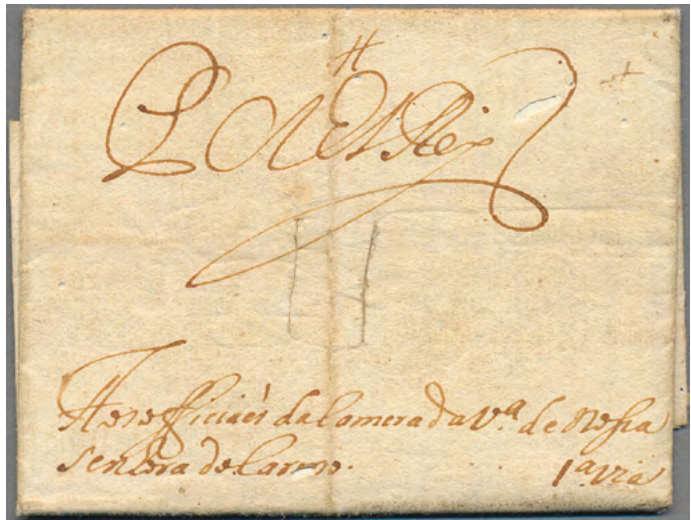 P. ElRey
Aos officiaes da Camera da V.ª de Nossa
Senhora do Carmo.
1ª via